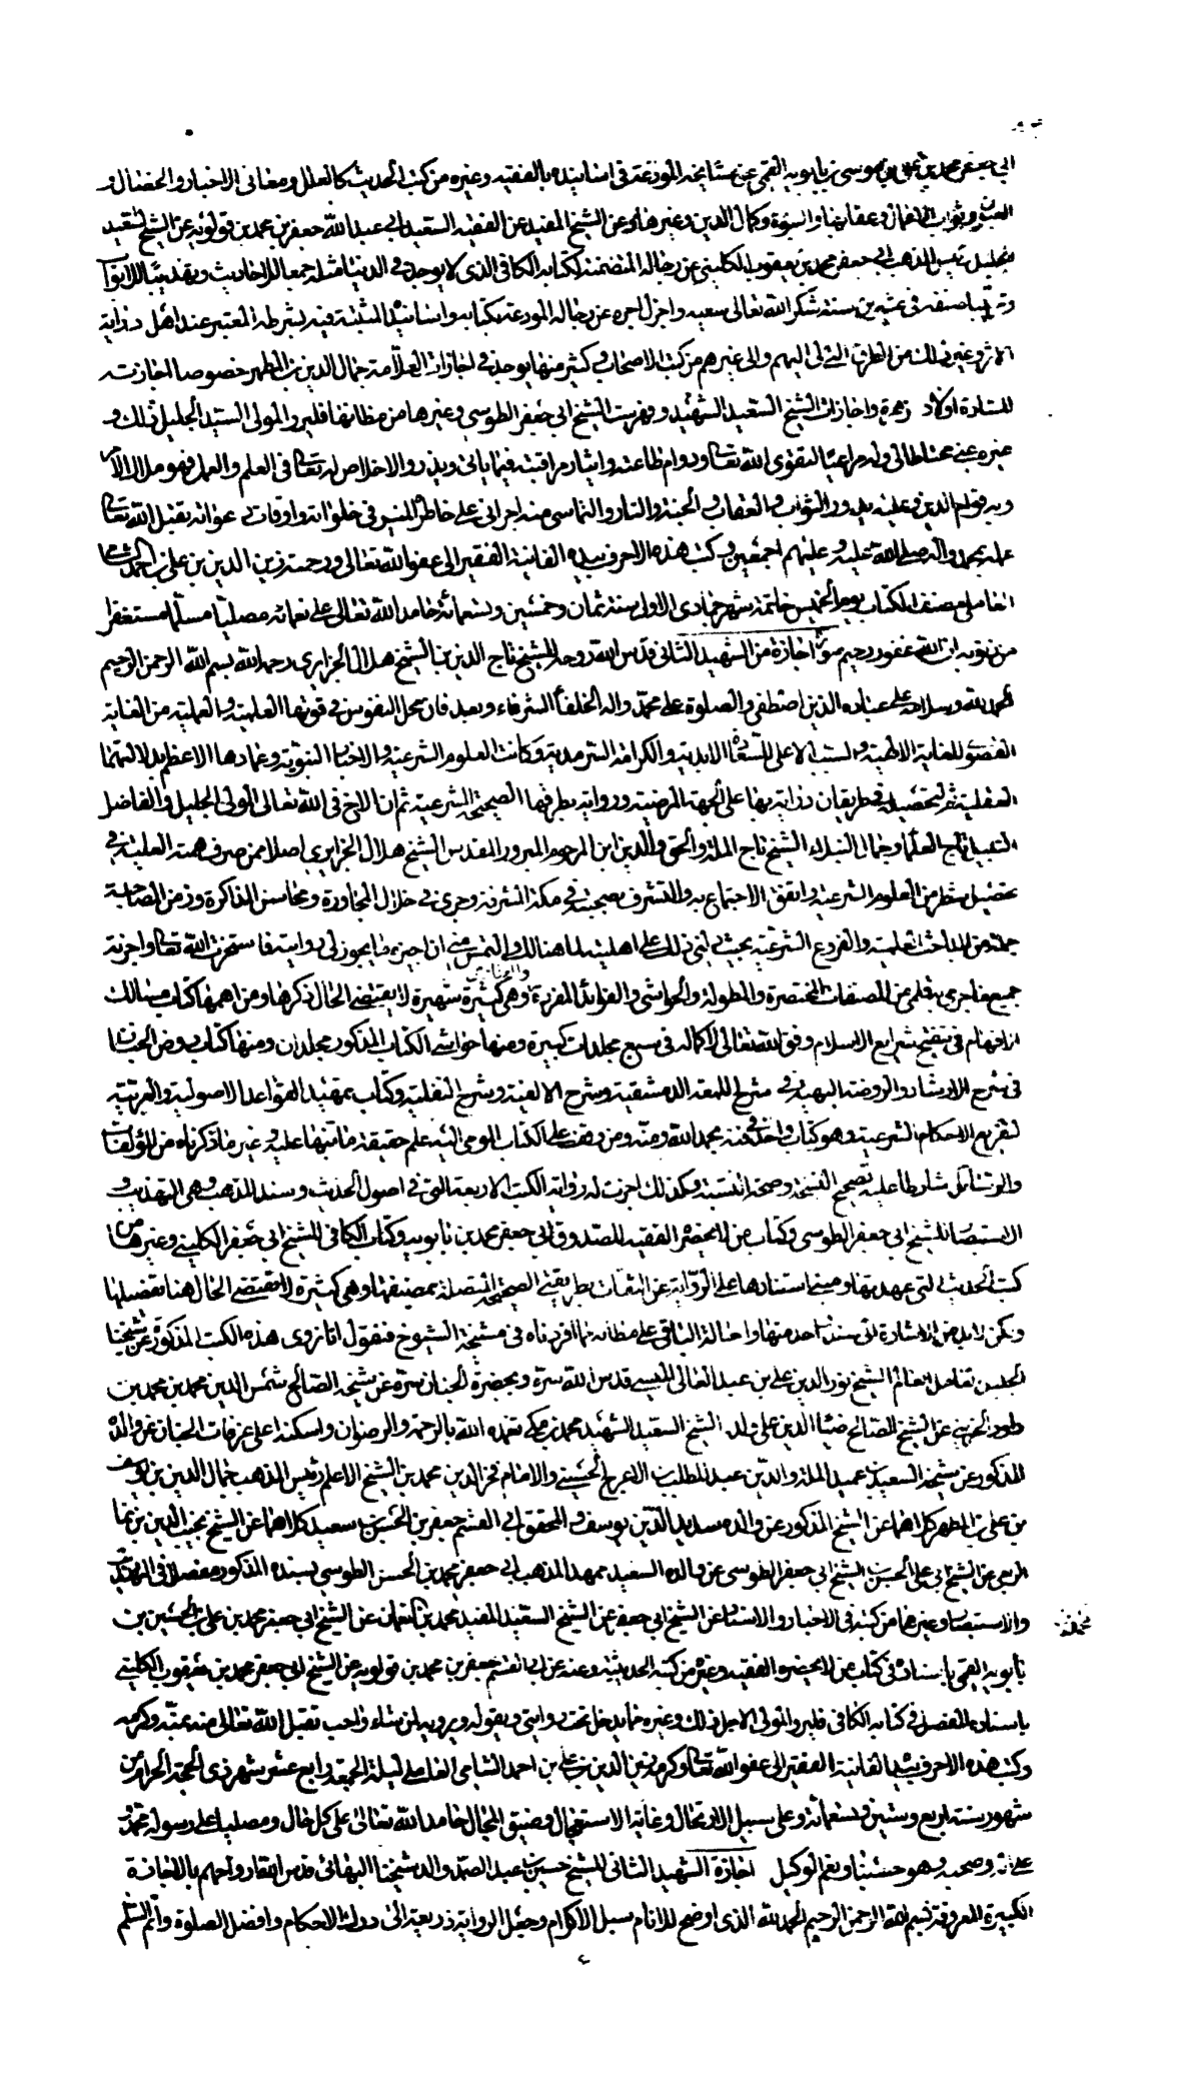 ابي جعفر محمد بن علي بن موسى بن بابويه القمي عن مشايخه المودعة في اسانيده بالفقيه وغيره من كتب الحديث كالعلل ومعاني الاخبار والخصال و
وثواب الاعمال وعقابها والنبوة وكمال الدين وغيرها وعن الشيخ المفيد عن الفقيه السعيد ابي عبد الله جعفر بن محمد بن قولويه عن الشيخ السعيد
الجليل رئيس المذهب ابي جعفر محمد بن يعقوب الكليني عن رجاله المتضمنة لكتابه الكافي الذي لا يوجد في الدنيا مثله جمعا للاحاديث وتهذيبا للابواب
وترتيبا صنفه في عشرين سنة شكر الله تعالى سعيه واجزل اجره عن رجاله المودعة بكتابه واسانيده المثبتة فيه بشرطه المعتبر عند اهل دراية
الاثر وغير ذلك من الطرق التي لي اليهم والى غيرهم من كتب الاصحاب وكثير منها يوجد في اجازات العلامة جمال الدين بن المطهر خصوصا اجازته
للسادة اولاد زهرة واجازات الشيخ السعيد الشهيد وفهرست الشيخ ابي جعفر الطوسي وغيرها من مظانها فليرو المولى السيد الجليل ذلك و
غيره عني محتاطا لي وله مراعيا لتقوى الله تعالى ودوام طاعته وايثار مراقبته فيما ياتي ويذر والاخلاص له تعالى في العلم والعمل فهو ملاك الامر
وبه قوام الدين وعليه يدور الثواب والعقاب والجنة والنار والتماسي منه اجرائي على خاطره المنير في خلواته واوقات دعواته تقبل الله تعالى
عمله بمحمد واله صلى الله عليه وعليهم اجمعين وكتب هذه الاحرف بيده الفانية الفقير الى عفو الله تعالى ورحمته زين الدين بن علي بن احمد الشامي
العاملي مصنف الكتاب يوم الخميس خاتمة شهر جمادى الاولى سنة ثمان وخمسين وتسعمائة حامدا لله تعالى على نعمائه مصليا مسلما مستغفرا
من ذنوبه ان الله غفور رحيم صورة اجازة من الشهيد الثاني قدس الله روحه للشيخ تاج الدين بن الشيخ هلال الجزايري رحمه الله بسم الله الرحمن الرحيم
الحمد لله وسلام على عباده الذين اصطفى والصلوة على محمد واله الخلفاء الشرفاء وبعد فان كمال النفوس في قوتها العلمية والعملية من الغاية
القصوى للعناية الالهية والسبب الاعلى للسعادة الابدية والكرامة السرمدية وكانت العلوم الشرعية والاخبار النبوية وعمادها الاعظم
العقلية ثم لتحصيله طريقان دراية بها على الجهة المرضية ورواية بطرقها الصحيحة الشرعية ثم ان الاخ في الله تعالى المولى الجليل والفاضل
النبيل تاج العلماء وجمال النبلاء الشيخ تاج الملة والحق والدين ابن المرحوم المبرور المقدس الشيخ هلال الجزايري اصلا ممن صرف همته العلية في
تحصيل شطر من العلوم الشرعية واتفق الاجتماع به والتشرف بصحبته في مكة المشرفة وجرى في خلال المجاورة ومحاسن المذاكرة وزمن المصاحبة
جملة من المباحث العلمية والفروع الشرعية بحيث انبئ ذلك على اهليته لما هنالك والتمس مني ان اجيز ما يجوز لي روايته فاستخرت الله تعالى واجزته
جميع ما جرى به قلمي من المصنفات المختصرة والمطولة والحواشي والفوائد المفردة وهي كثيرة شهيرة لا يقتضي الحال ذكرها ومن اهمها كتاب مسالك
الافهام في تنقيح شرايع الاسلام وفق الله تعالى لاكماله في سبع مجلدات كبيرة ومنها حواشي الكتاب المذكور مجلدان ومنها كتاب روض الجنان
في شرح الارشاد والروضة البهية في شرح اللمعة الدمشقية وشرح الالفية وشرح النفلية وكتاب تمهيد القواعد الاصولية والعربية
لتفريع الاحكام الشرعية وهو كتاب واحد في فنه بحمد الله ومنه ومن وقف على الكتاب المومى اليه علم حقيقة ما نبهنا عليه وغير ما ذكرناه من المؤلفات
والرسائل شارطا عليه تصحيح النسخة وصحة النسبة وكذلك اجزت له رواية الكتب الاربعة التي في اصول الحديث وسند المذهب وهي التهذيب و
الاستبصار للشيخ ابي جعفر الطوسي وكتاب من لا يحضره الفقيه للصدوق ابي جعفر محمد بن بابويه وكتاب الكافي للشيخ ابي جعفر الكليني وغيرها من
كتب الحديث التي عهدتها ومبنى استنادها على الرواية عن الثقات بطريقتي الصحيحة المتصلة بمصنفها وهي كثيرة لا يقتضي الحال هنا تفصيلها
ولكن لابد من الاشارة الى سند احد منها واحالة الباقي على مظانه مما افردناه في مشيخة الشيوخ فنقول انا نروي هذه الكتب المذكورة عن شيخنا
الجليل الفاضل العالم الشيخ نور الدين علي بن عبد العالي الميسي قدس الله سره وبحضرة الجنان سره عن شيخه الصالح شمس الدين محمد بن محمد بن
داود الجزيني عن الشيخ الصالح ضياء الدين علي ولد الشيخ السعيد الشهيد محمد بن مكي تغمده الله بالرحمة والرضوان واسكنه اعلى غرفات الجنان عن والده
المذكور عن شيخه السعيدين عميد الملة والدين عبد المطلب بن الاعرج الحسيني والامام فخر الدين محمد بن الشيخ الاعلم رئيس المذهب جمال الدين بن يوسف
بن علي بن المطهر كلاهما عن الشيخ المذكور عن والده سديد الدين يوسف والمحقق ابي القسم جعفر بن الحسن بن سعيد كلاهما عن الشيخ نجيب الدين بن نما
الربعي عن الشيخ ابي علي الحسن بن الشيخ ابي جعفر الطوسي عن والده السعيد ممهد المذهب ابي جعفر محمد بن الحسن الطوسي بسنده المذكور مفصلا في التهذيب
والاستبصار وغيرهما من كتبه في الاخبار والاسناد عن الشيخ ابي جعفر عن الشيخ السعيد المفيد محمد بن النعمان عن الشيخ ابي جعفر محمد بن علي بن الحسين بن
بابويه القمي باسناده في كتاب من لا يحضره الفقيه وغيره من كتبه الحديثية وعنه عن ابي القسم جعفر بن محمد بن قولويه عن الشيخ ابي جعفر محمد بن يعقوب الكليني
باسناده المفصل في كتابه الكافي فليرو المولى الاجل ذلك وغيره مما يدخل تحت روايتي ويقوله ويرويه لمن شاء واحب تقبل الله تعالى منه بمنه وكرمه
وكتب هذه الاحرف بيده الفانية الفقير الى عفو الله تعالى وكرمه زين الدين بن علي بن احمد الشامي العاملي ليلة الجمعة رابع عشر شهر ذي الحجة الحرام من
شهور سنة اربع وستين وتسعمائة وعلى سبيل الارتجال وغاية الاستعجال وضيق المجال حامدا لله تعالى على كل حال ومصليا على رسوله محمد
واله وصحبه وهو حسبنا ونعم الوكيل اجازة الشهيد الثاني للشيخ حسين بن عبد الصمد والد شيخنا البهائي قدس الله ارواحهم بالاجازة
الكبيرة المعروفة بسم الله الرحمن الرحيم الحمد لله الذي اوضح للانام سبل الاكرام وجعل الرواية ذريعة الى درك الاحكام وافضل الصلوة واتم السلام